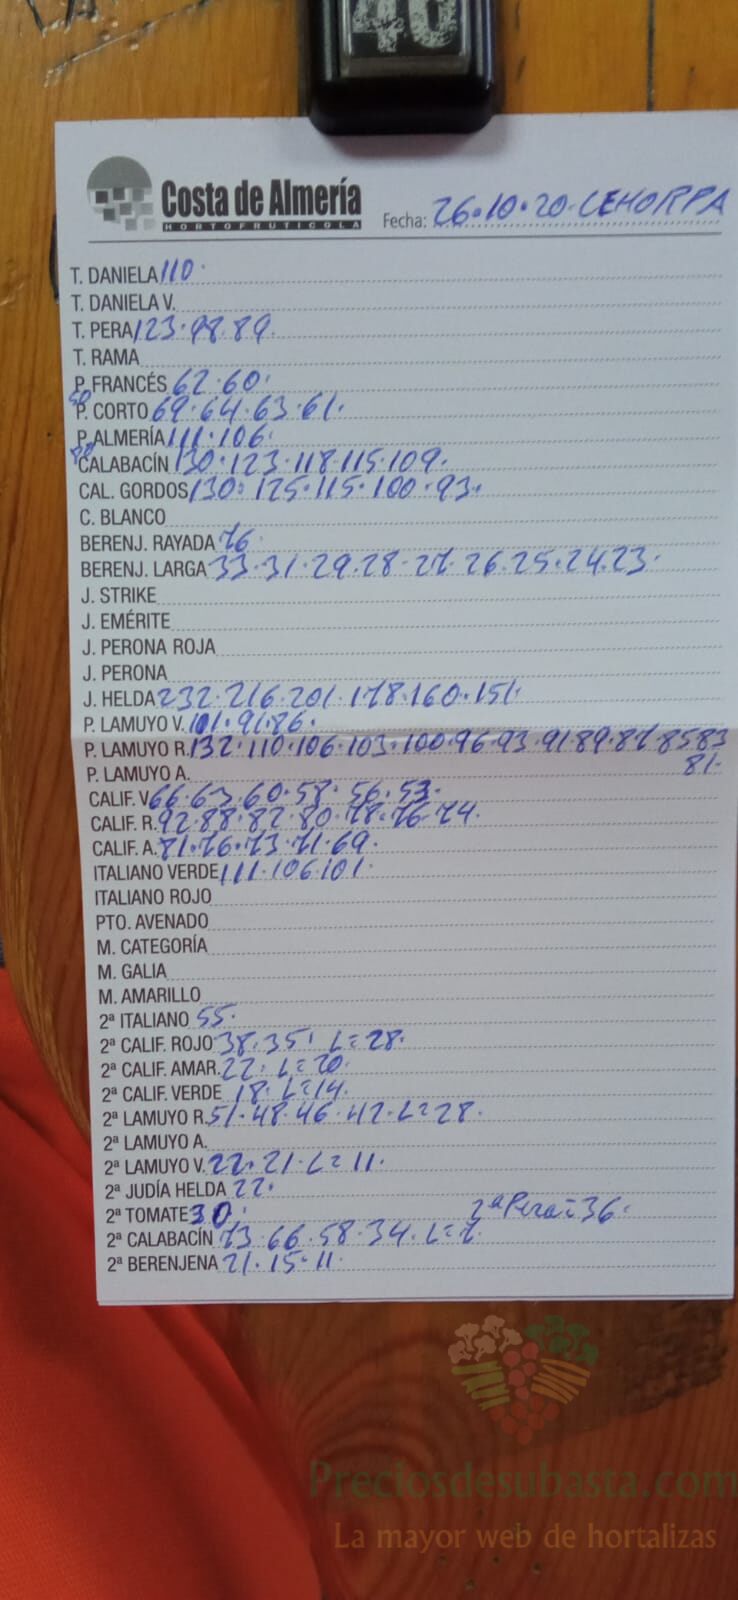 40
Costa de Almería
HORTOFRUTICOLA
Fecha: 26·10·20·CEHORPA
T. DANIELA 110·
T. DANIELA V.
T. PERA 123·98·89·
T. RAMA
P. FRANCÉS 62·60·
P. CORTO 69·64·63·61·
P. ALMERÍA 111·106·
CALABACÍN 130·123·118·115·109·
CAL. GORDOS 130·125·115·100·93·
C. BLANCO
BERENJ. RAYADA 76·
BERENJ. LARGA 33·31·29·28·27·26·25·24·23·
J. STRIKE
J. EMÉRITE
J. PERONA ROJA
J. PERONA
J. HELDA 232·216·201·178·160·151·
P. LAMUYO V. 101·91·86·
P. LAMUYO R. 132·110·106·103·100·96·93·91·89·87·85·83
P. LAMUYO A. 81·
CALIF. V. 66·63·60·58·56·53·
CALIF. R. 92·88·82·80·78·76·74·
CALIF. A. 81·76·73·71·69·
ITALIANO VERDE 111·106·101·
ITALIANO ROJO
PTO. AVENADO
M. CATEGORÍA
M. GALIA
M. AMARILLO
2ª ITALIANO 55·
2ª CALIF. ROJO 38·35· L=28·
2ª CALIF. AMAR. 22· L=20·
2ª CALIF. VERDE 18· L=14·
2ª LAMUYO R. 51·48·46·42·L=28·
2ª LAMUYO A.
2ª LAMUYO V. 22·21·L=11·
2ª JUDÍA HELDA 22·
2ª TOMATE 30· 2ª Pera=36·
2ª CALABACÍN 73·66·58·34·L=7·
2ª BERENJENA 21·15·11·
Preciosdesubasta.com
La mayor web de hortalizas